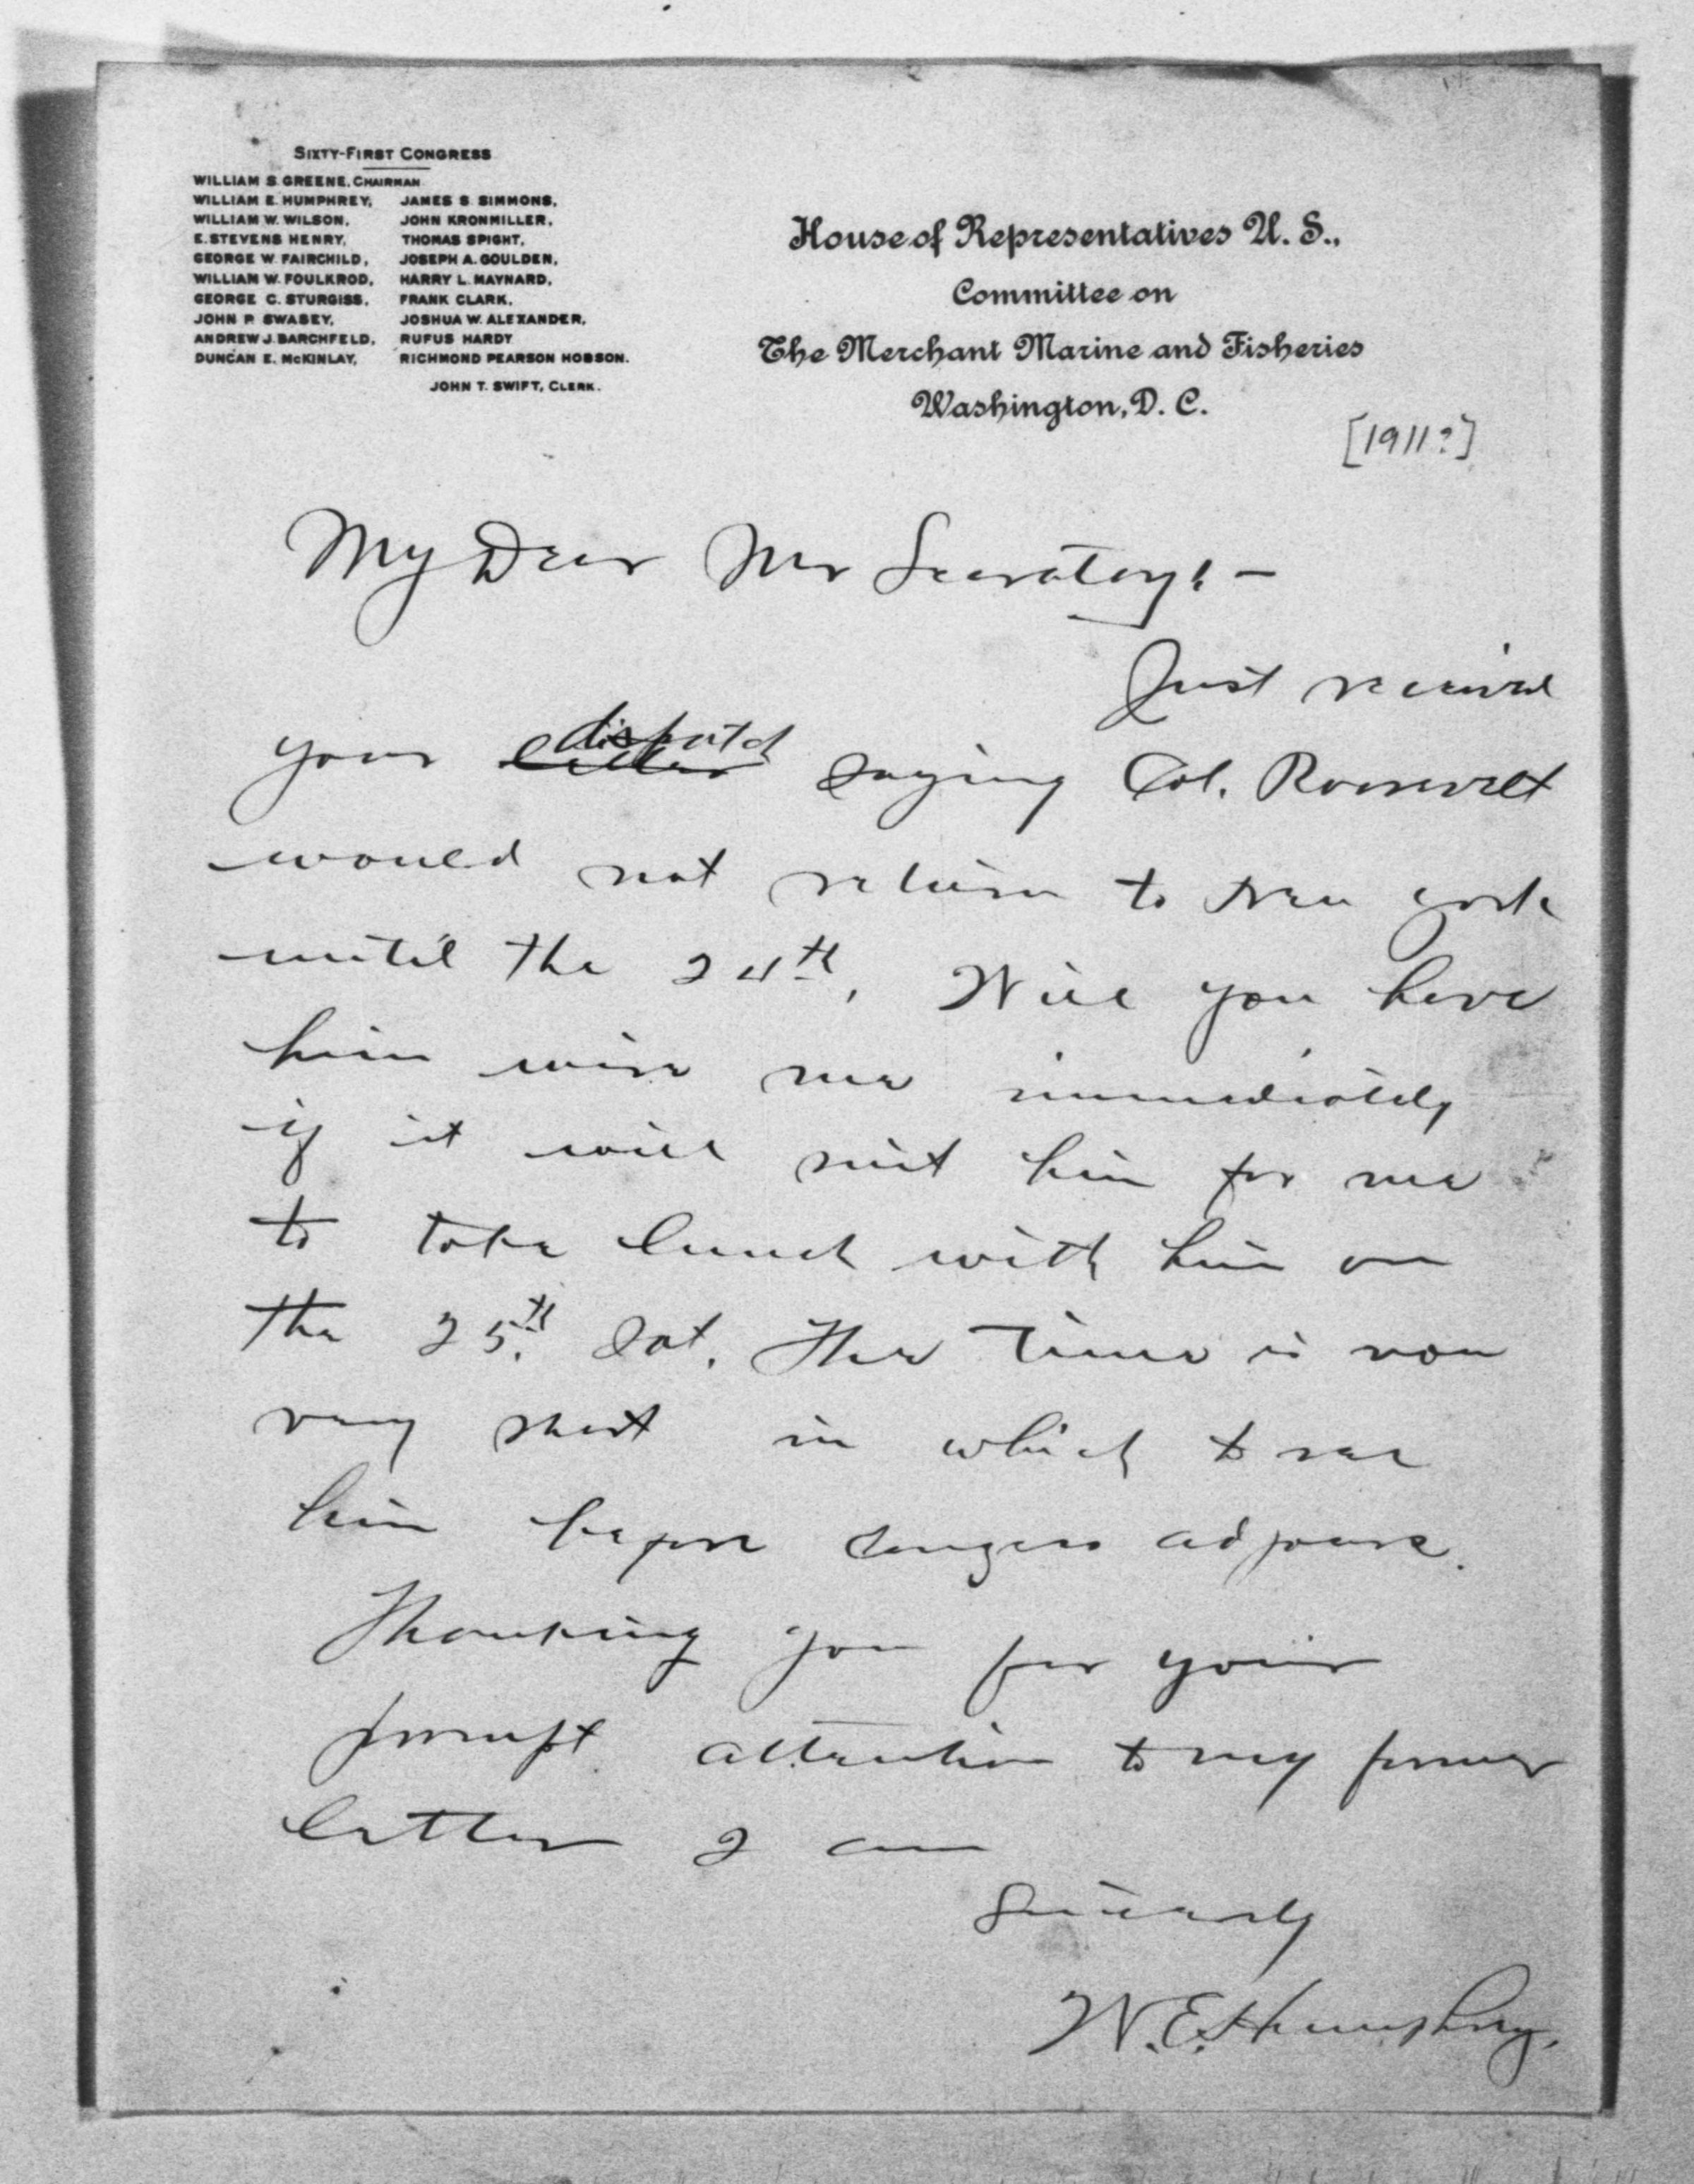 SIXTY-FIRST CONGRESS
WILLIAM S. GREENE, CHAIRMAN
WILLIAM E. HUMPHREY, JAMES S. SIMMONS,
WILLIAM W. WILSON, JOHN KRONMILLER,
E. STEVENS HENRY, THOMAS SPIGHT,
GEORGE W. FAIRCHILD, JOSEPH A. GOULDEN,
WILLIAM W. FOULKROD, HARRY L. MAYNARD,
GEORGE C. STURGISS, FRANK CLARK,
JOHN P. SWASEY, JOSHUA W. ALEXANDER,
ANDREW J. BARCHFELD, RUFUS HARDY
DUNCAN E. McKINLAY, RICHMOND PEARSON HOBSON.
JOHN T. SWIFT, CLERK.
House of Representatives U. S.,
Committee on
The Merchant Marine and Fisheries
Washington, D. C.
[1911?]
My Dear Mr Secretary: -
Just received
dispatch
your letter saying Col. Roosevelt
would not return to New York
until the 24th. Will you have
him wire me immediately
if it will suit him for me
to take lunch with him on
the 25th. Sat. The time is now
very short in which to see
him before Congress adjourns.
Thanking you for your
prompt attention to my former
letter I am
Sincerely
W. E. Humphrey.